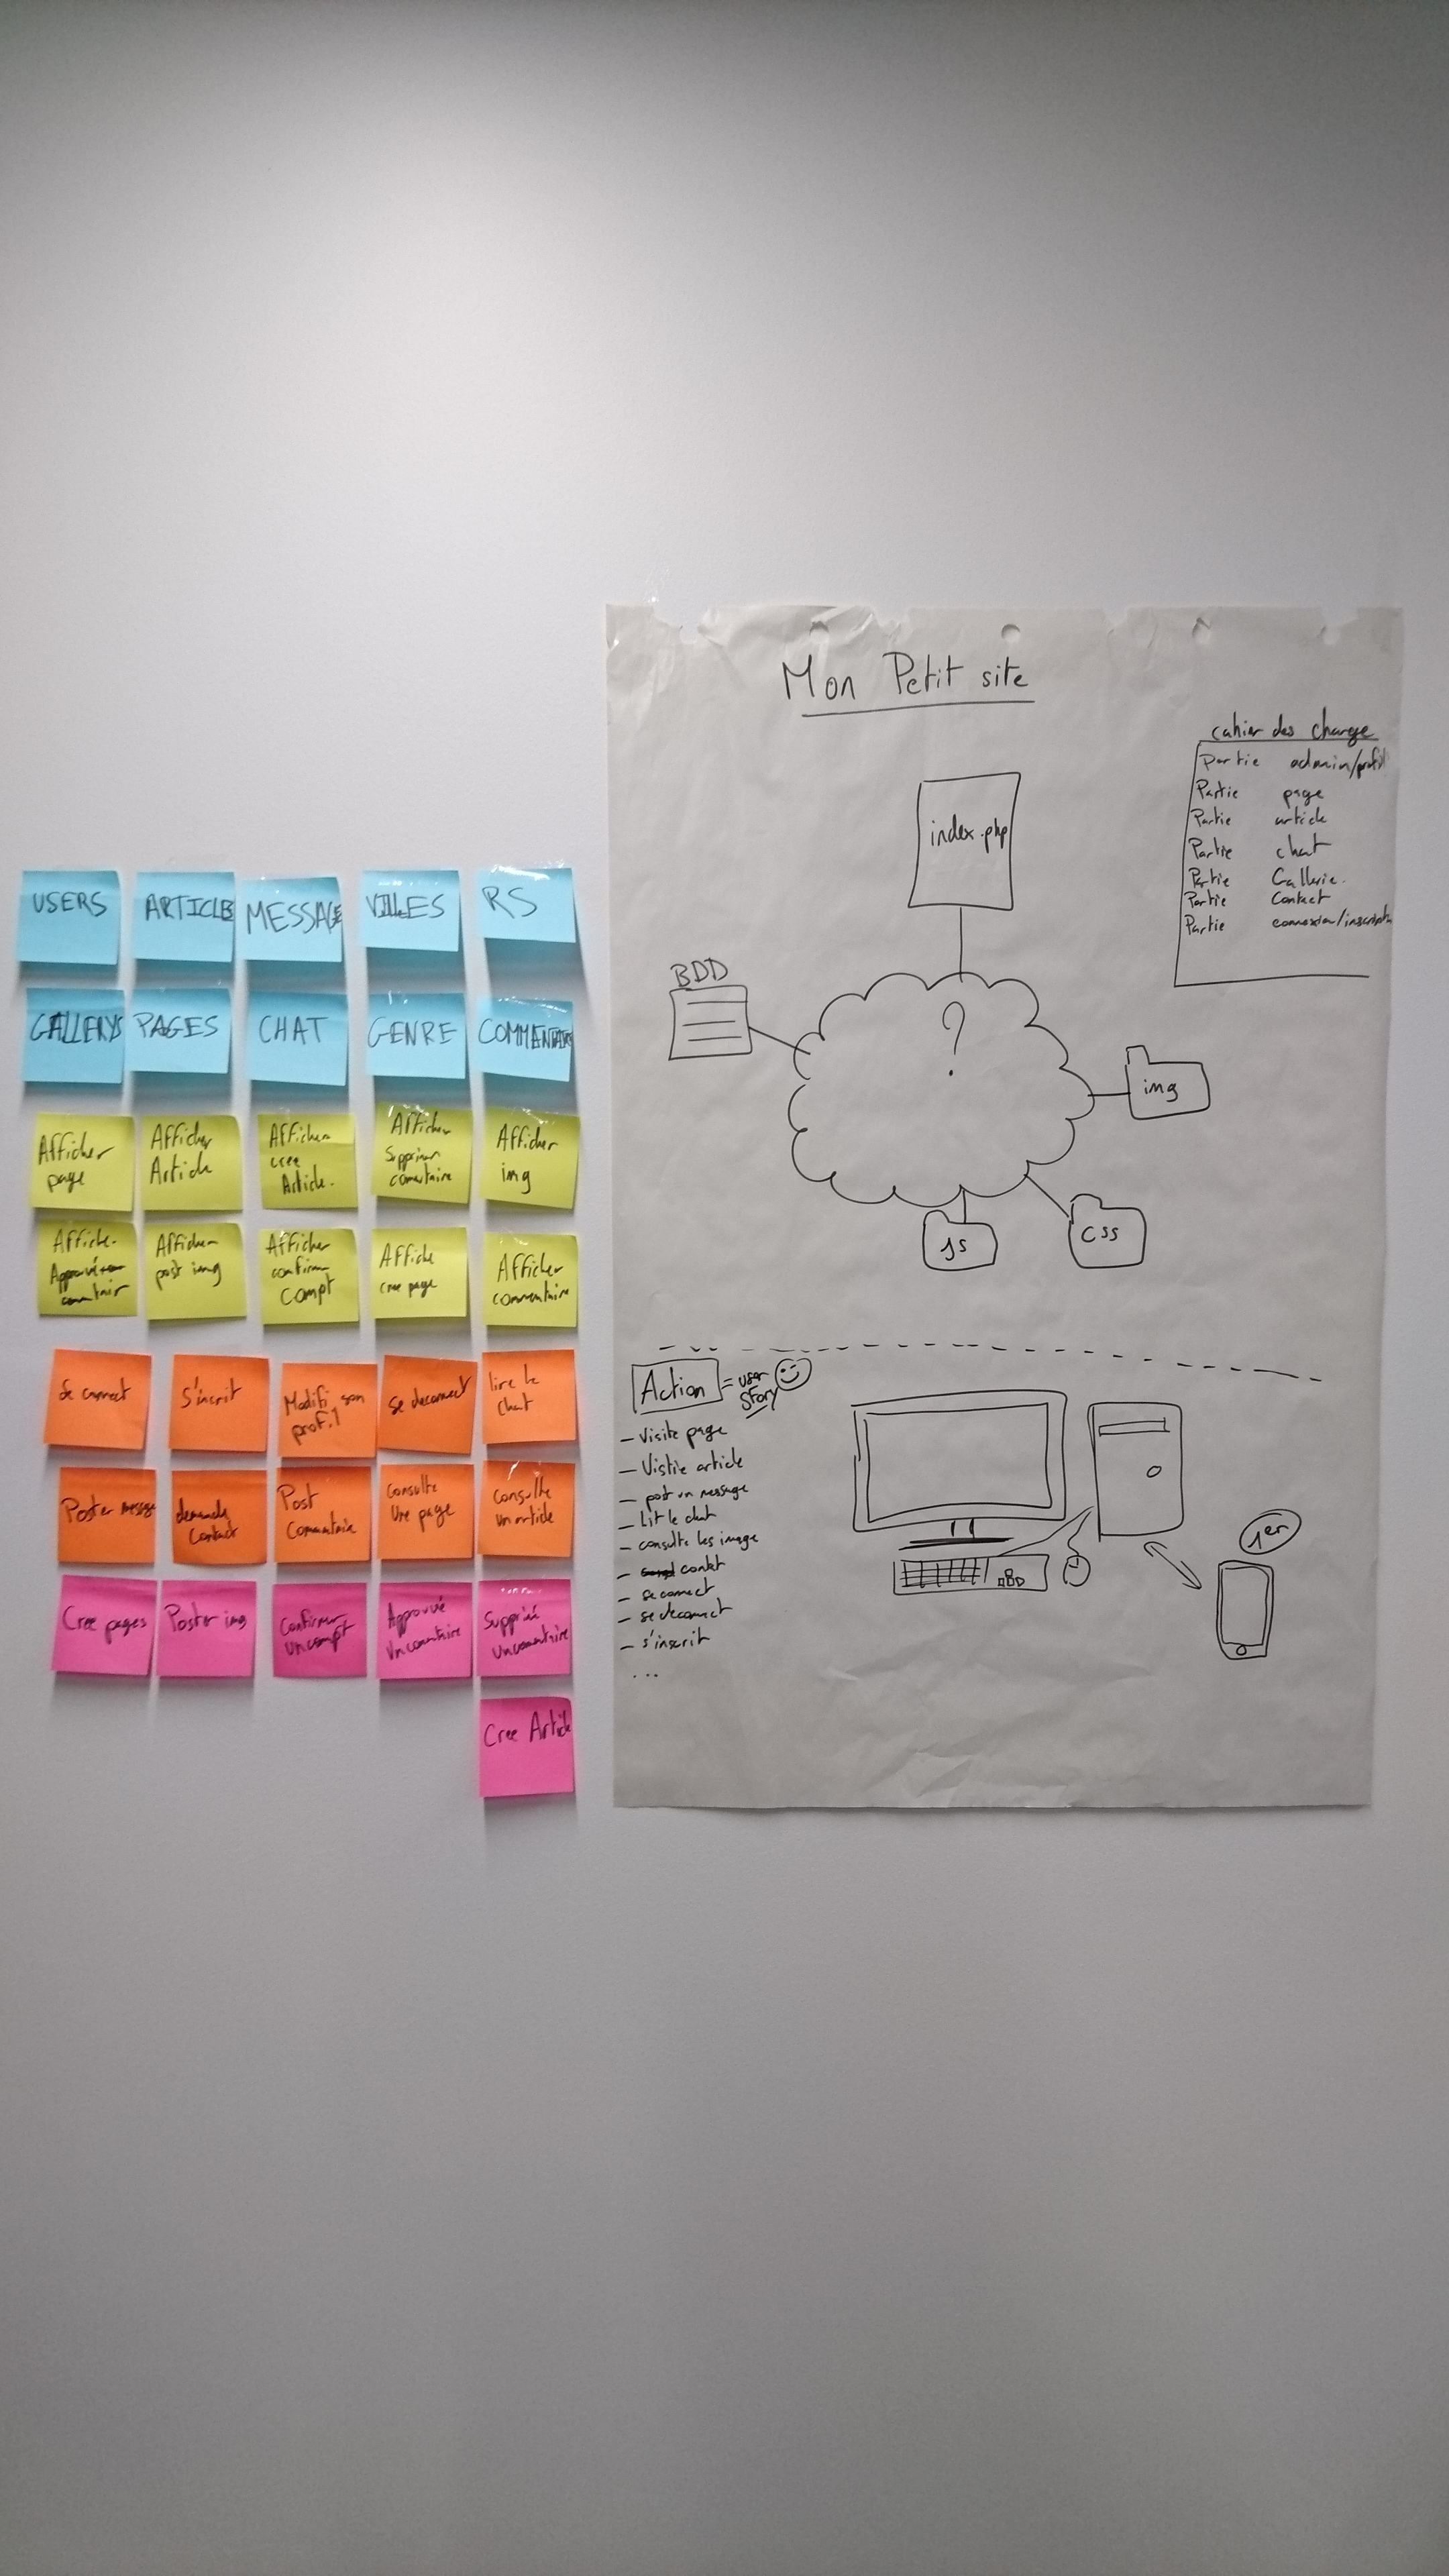 USERS
ARTICLES
MESSAGE
VILLES
RS
GALLERYS
PAGES
CHAT
GENRE
COMMENTAIRE
Afficher
page
Afficher
Article
Afficher
cree
Article.
Afficher
Supprimer
comentaire
Afficher
img
Affiche
Approuvé
comentair
Afficher
post img
Afficher
confirm
compt
Affiche
cree page
Afficher
commentaire
Se connect
S'inscrit
Modifi son
profil
se deconnect
lire le
chat
Poster message
demande
Contact
Post
Commentaire
Consulte
Une page
consulte
un article
Cree pages
Poster img
Confirmer
un compt
Approuvé
Un comentaire
Supprimé
un comentaire
Cree Article
Mon Petit site
cahier des charge
Partie admin/profil
Partie page
Partie article
Partie chat
Partie Gallerie.
Partie Contact
Partie connexion/inscription
index.php
BDD
?
img
js
css
Action = user
story
– Visite page
– Vistie article
– post un message
– Lit le chat
– consulte les image
– contact
– se connect
– se deconnect
– s'inscrit
...
1er